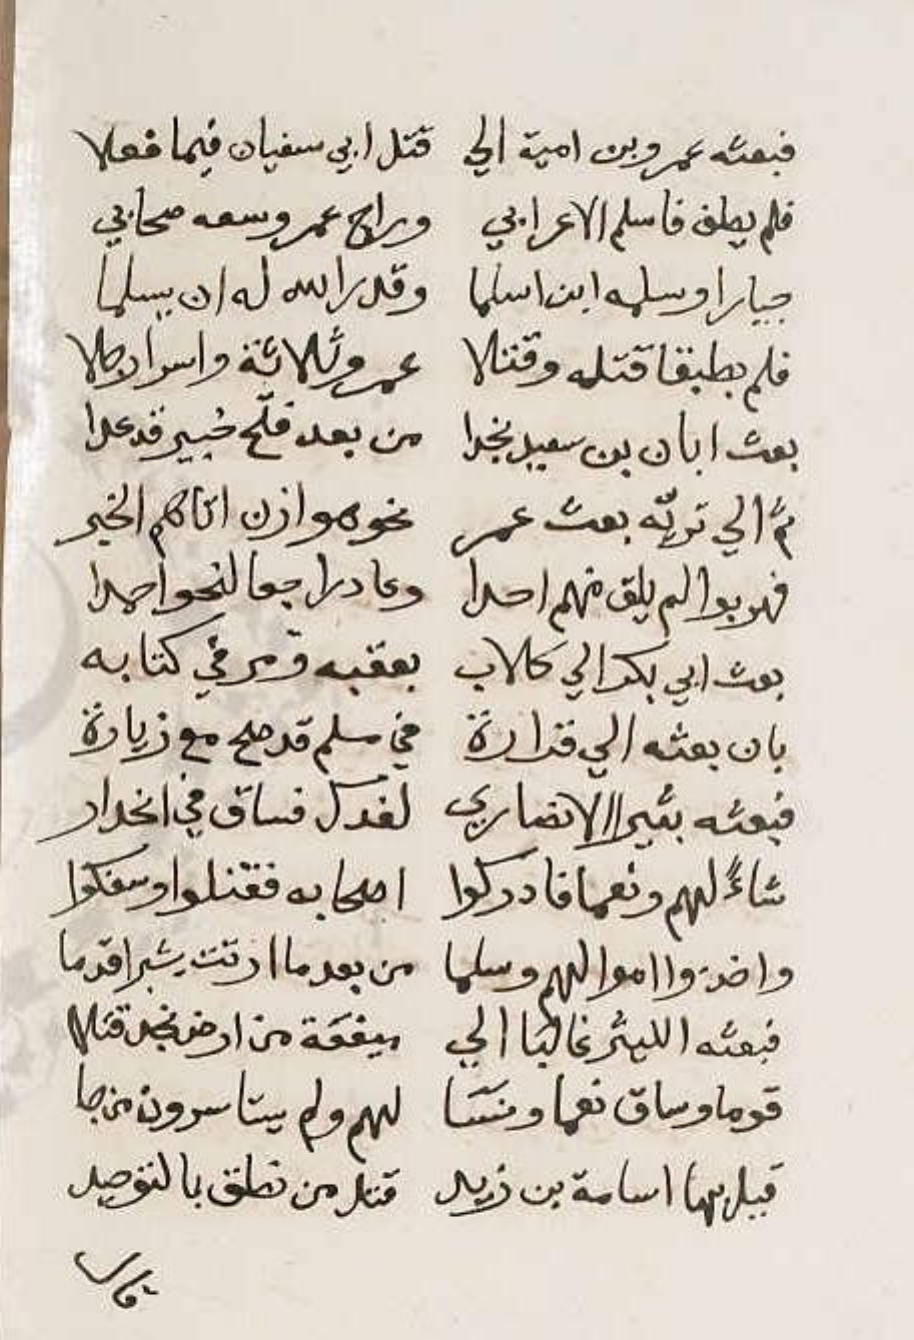 فبعثه عمرو بن امية الي قتل ابي سفيان فيما فعلا
فلم يطق فاسلم الاعرابي وراح عمرو معه صحابي
جبارا وسلمه ابن اسلما وقدر الله له ان يسلما
فلم يطبقا قتله وقتلا عمرو ثلاثة واسرا رجلا
بعث ابان بن سعيد نجدا من بعد فتح خيبر قد عدا
ثم الي تربه بعث عمر نحو هوازن اتاهم الخبر
فهربوا لم يلق منهم احدا وعاد راجعا لنحو احمدا
بعث ابي بكر الي كلاب بعقبه قد مر في كتابه
بان بعثه الي فزارة في مسلم قد صح مع زيارة
فبعثه بشيرا الانصاري لفدك فساق في انحدار
شاءً لهم ونعما فادركوا اصحابه فقتلوا وسفكوا
واخذوا اموالهم وسلما من بعد ما ارتث بشيرا قدما
فبعثه الليثي غالبا الي ميفعة من ارض نجد قتلا
قوما وساق نعما ونسا لهم ولم يستاسرون من جا
قيل بها اسامة بن زيد قتل من نطق بالتوحيد
قال